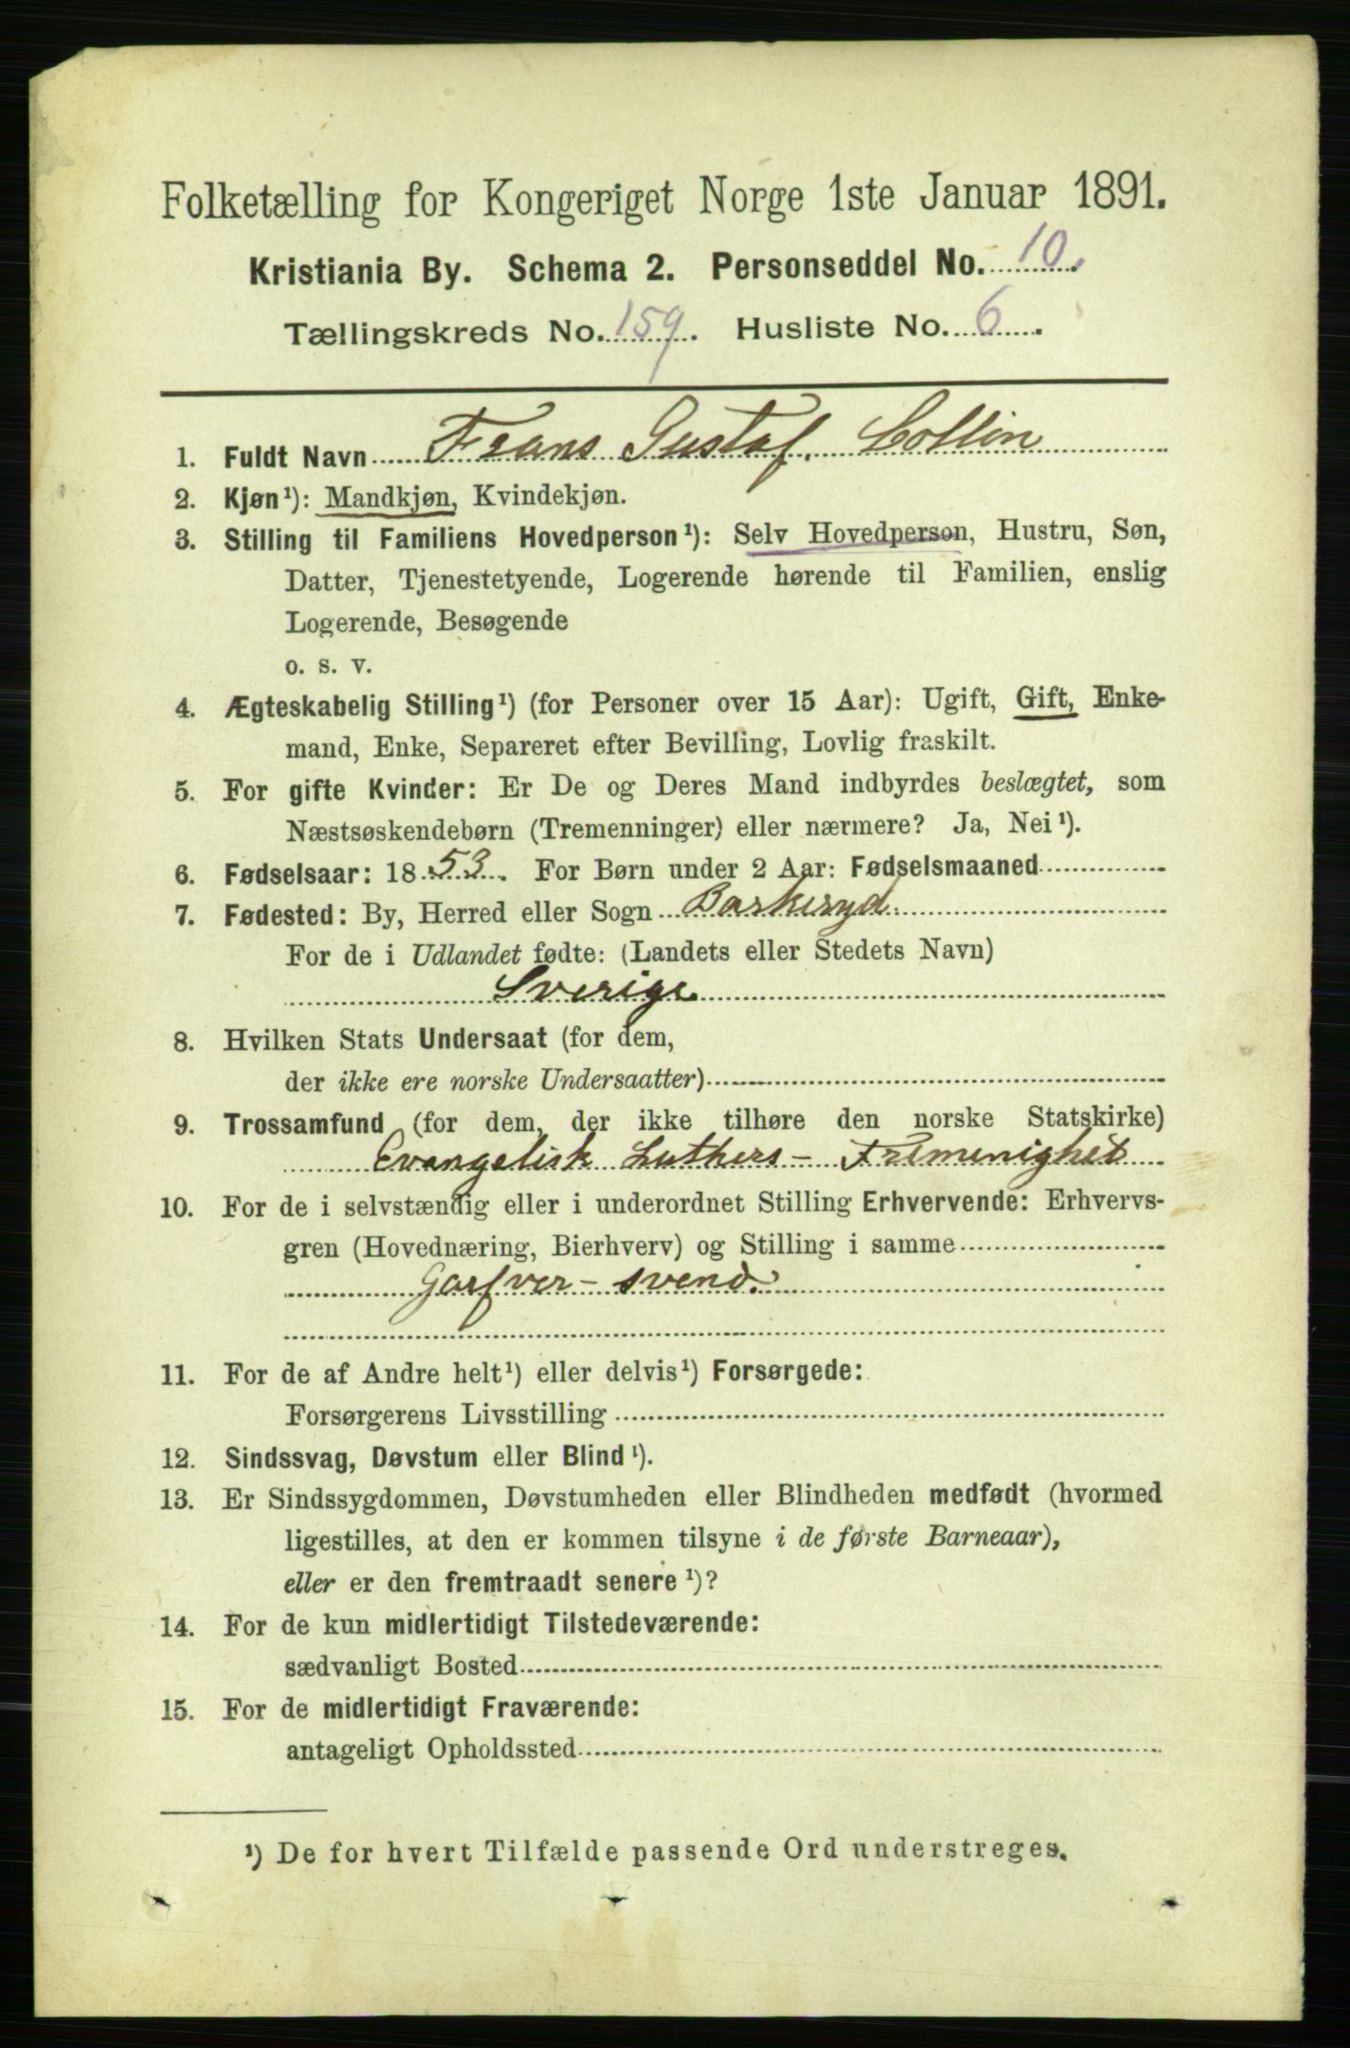 Folketælling for Kongeriget Norge 1ste Januar 1891.
Kristiania By. Schema 2. Personseddel No. 10.
Tællingskreds No. 159. Husliste No. 6.
1. Fuldt Navn Frans Gustaf. Collin
2. Kjøn¹): Mandkjøn, Kvindekjøn.
3. Stilling til Familiens Hovedperson¹): Selv Hovedperson, Hustru, Søn,
Datter, Tjenestetyende, Logerende hørende til Familien, enslig
Logerende, Besøgende
o. s. v.
4. Ægteskabelig Stilling¹) (for Personer over 15 Aar): Ugift, Gift, Enke-
mand, Enke, Separeret efter Bevilling, Lovlig fraskilt.
5. For gifte Kvinder: Er De og Deres Mand indbyrdes beslægtet, som
Næstsøskendebørn (Tremenninger) eller nærmere? Ja, Nei¹).
6. Fødselsaar: 1853. For Børn under 2 Aar: Fødselsmaaned
7. Fødested: By, Herred eller Sogn Barkeryd.
For de i Udlandet fødte: (Landets eller Stedets Navn)
Sverige
8. Hvilken Stats Undersaat (for dem,
der ikke ere norske Undersaatter)
9. Trossamfund (for dem, der ikke tilhøre den norske Statskirke)
Evangelisk Luthers - Frimenighet
10. For de i selvstændig eller i underordnet Stilling Erhvervende: Erhvervs-
gren (Hovednæring, Bierhverv) og Stilling i samme
Garfver - svend.
11. For de af Andre helt¹) eller delvis¹) Forsørgede:
Forsørgerens Livsstilling
12. Sindssvag, Døvstum eller Blind¹).
13. Er Sindssygdommen, Døvstumheden eller Blindheden medfødt (hvormed
ligestilles, at den er kommen tilsyne i de første Barneaar),
eller er den fremtraadt senere¹)?
14. For de kun midlertidigt Tilstedeværende:
sædvanligt Bosted
15. For de midlertidigt Fraværende:
antageligt Opholdssted
¹) De for hvert Tilfælde passende Ord understreges.